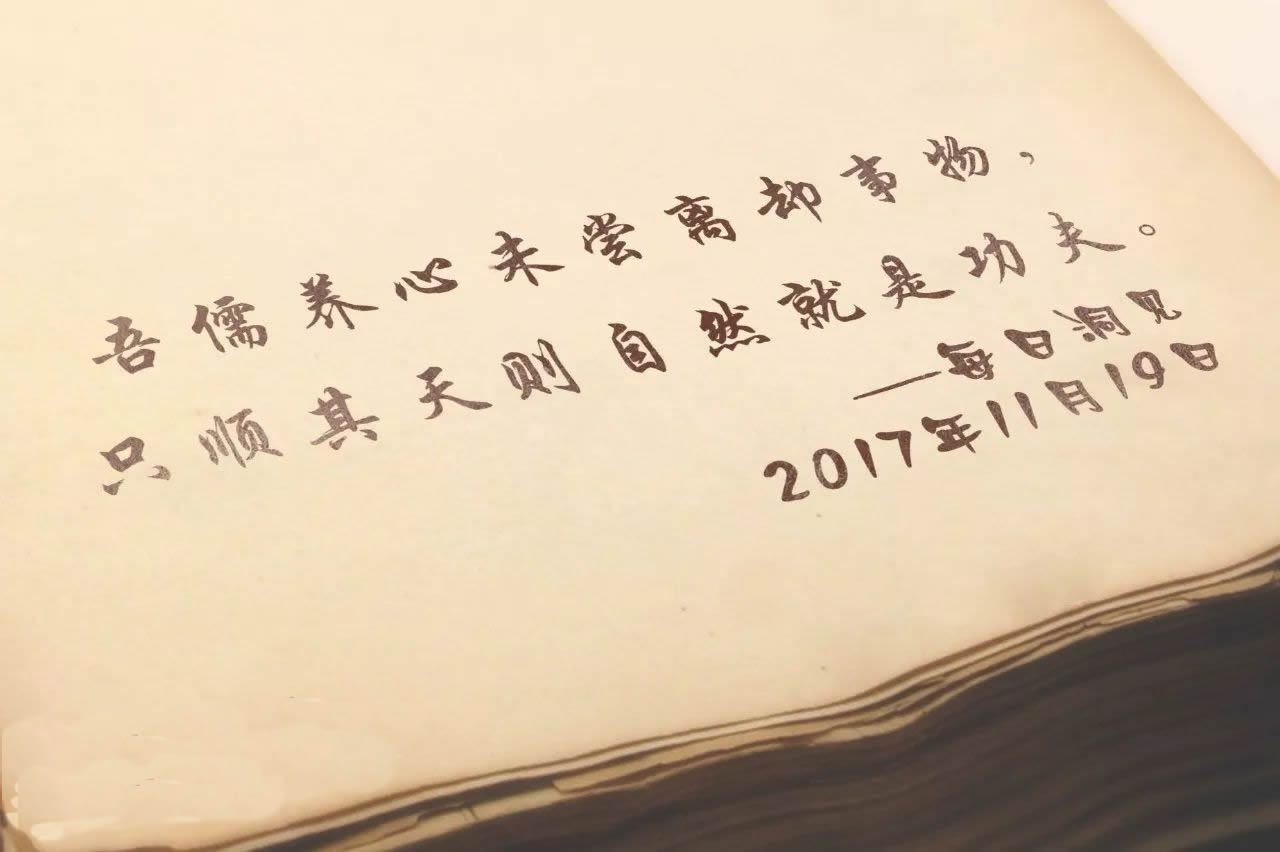 吾儒养心未尝离却事物，
只顺其天则自然就是功夫。
——每日洞见
2017年11月19日